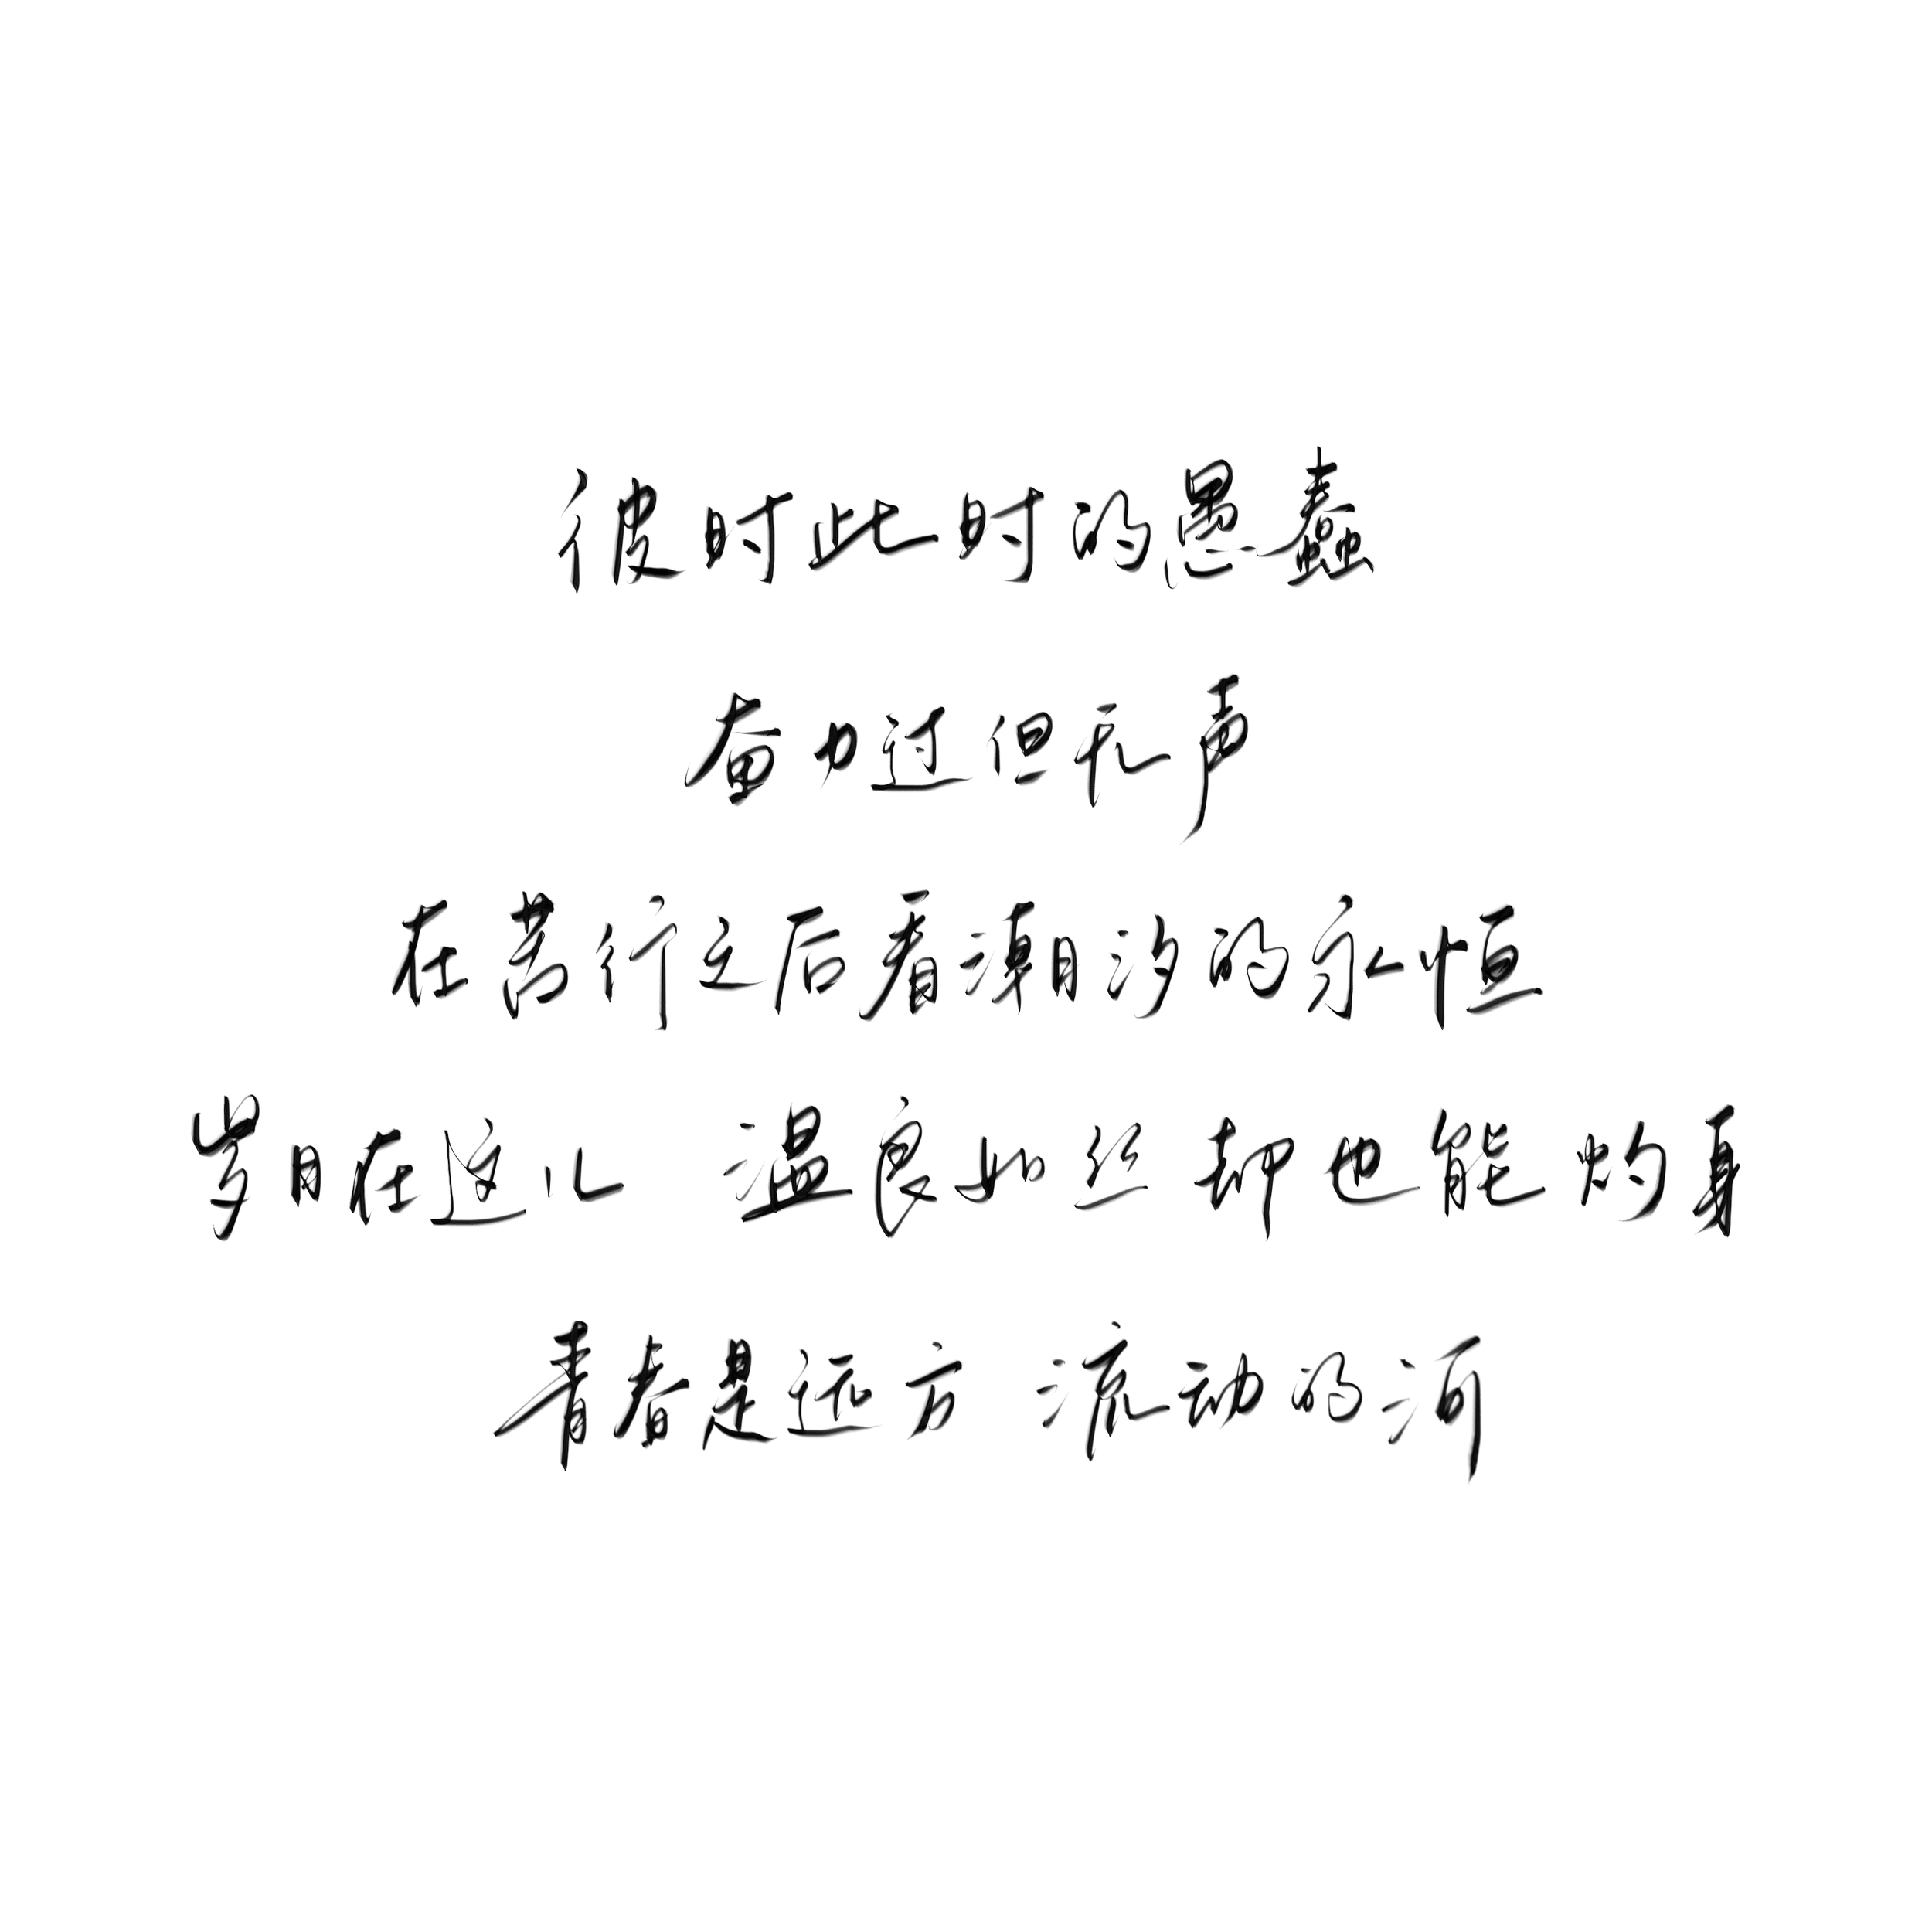 彼时此时的愚蠢
奋力过但无声
在苦行之后看潮汐的永恒
岁月在这儿 温良如丝却也能灼身
青春是远方 流动的河